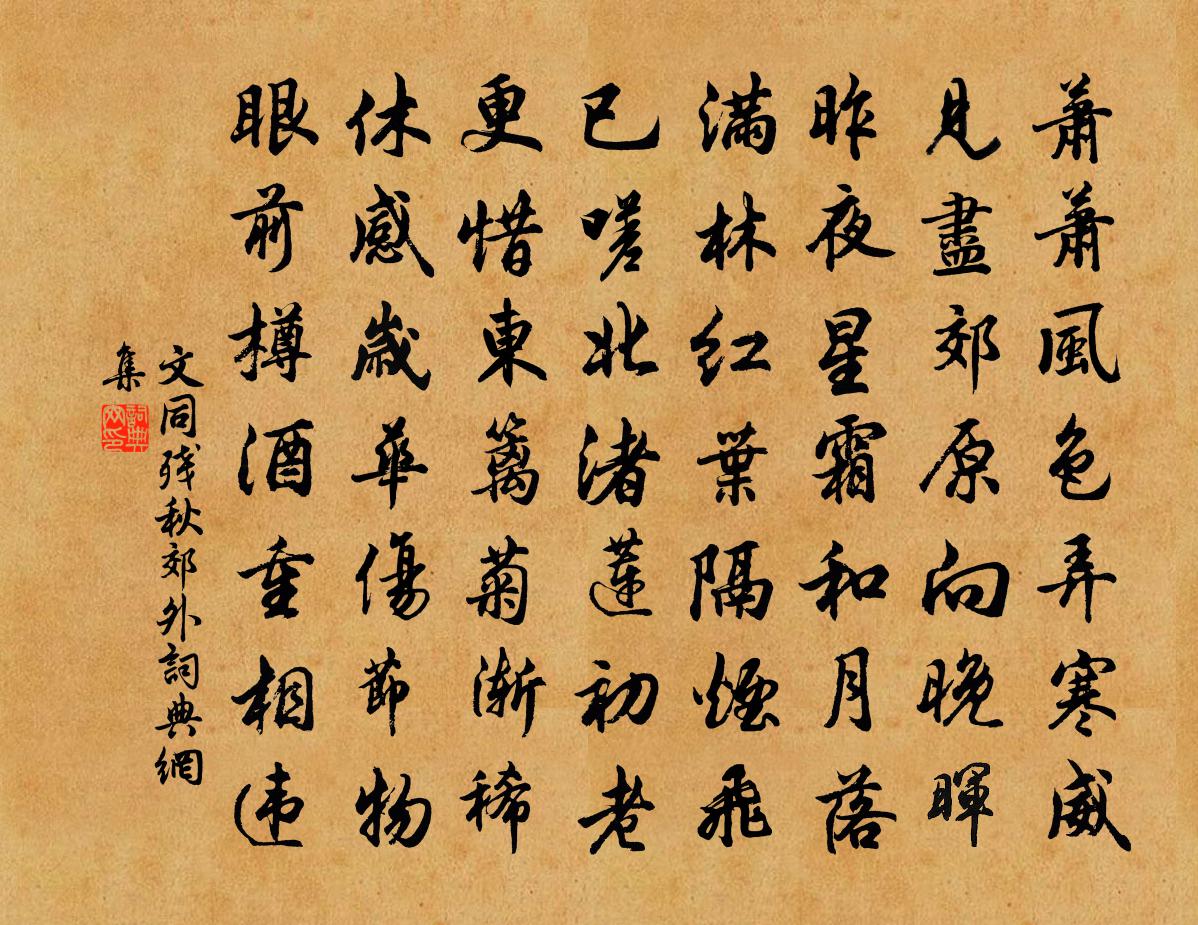 蕭蕭風色弄寒威
見盡郊原向晚暉
昨夜星霜和月落
滿林紅葉隔煙飛
已嗟北渚蓮初老
更惜東籬菊漸稀
休感歲華傷節物
眼前樽酒重相違
文同殘秋郊外詞典網
集
詞典網印